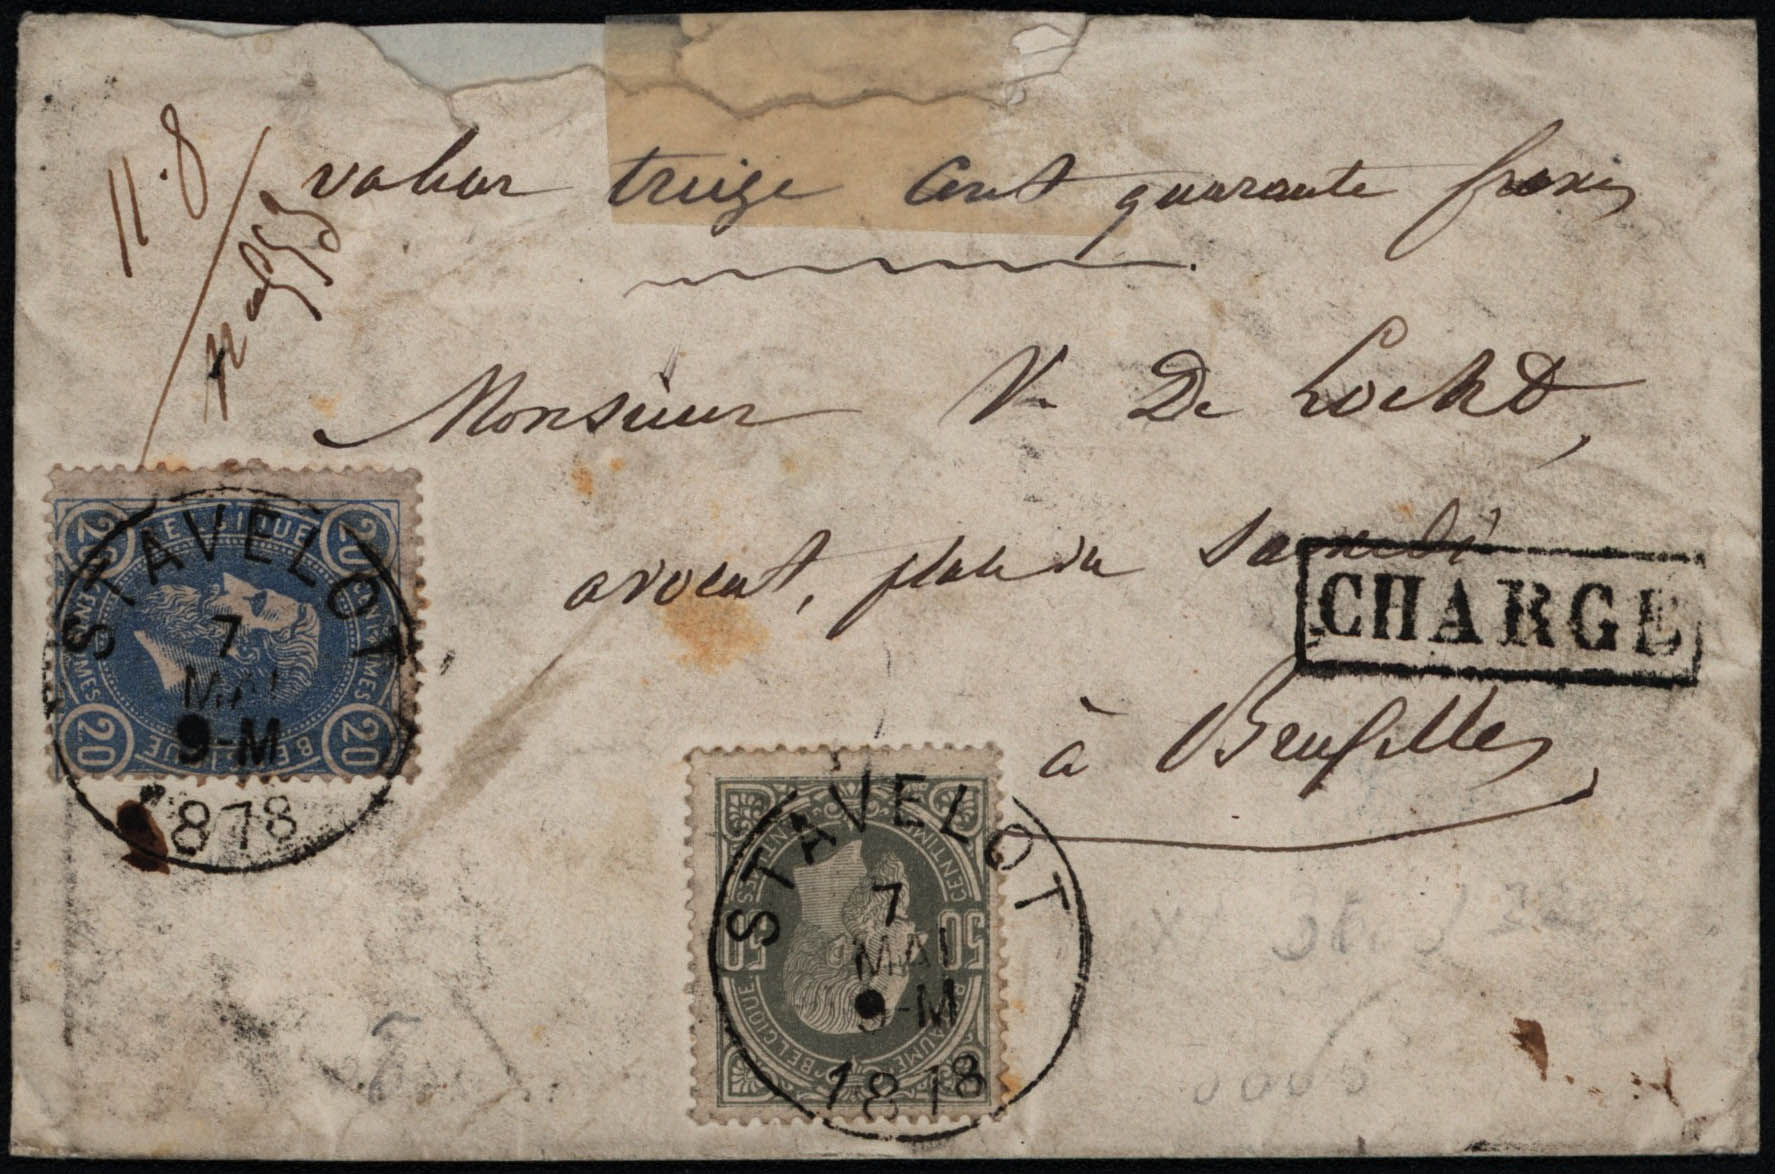 11.8
valeur treize cent quarante francs
Monsieur V. De Locht,
avocat, place du Samedi
CHARGE
à Bruxelles
BELGIQUE
20 20
CENTIMES CENTIMES
20 20
STAVELOT
7
MAI
9-M
1878
CENTIMES
50 50
BELGIQUE
STAVELOT
7
MAI
9-M
1878